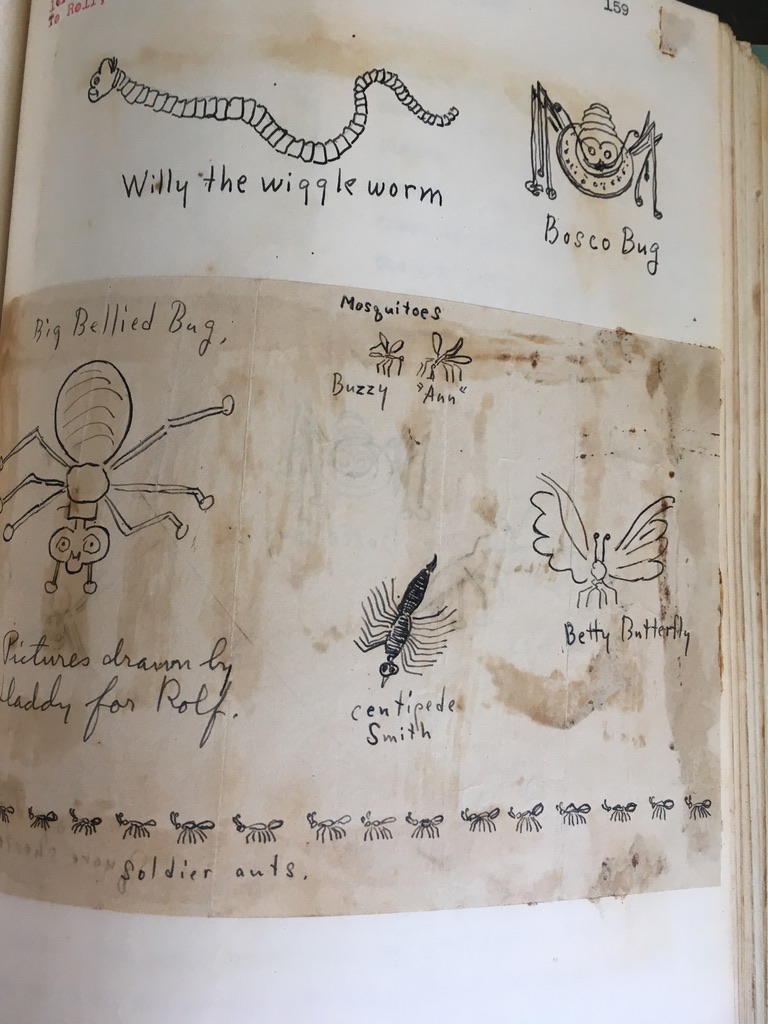 To Rolf,
159
Willy the wiggle worm
Bosco Bug
Big Bellied Bug,
Mosquitoes
Buzzy "Ann"
Betty Butterfly
Pictures drawn by
daddy for Rolf.
centipede
Smith
Soldier ants.